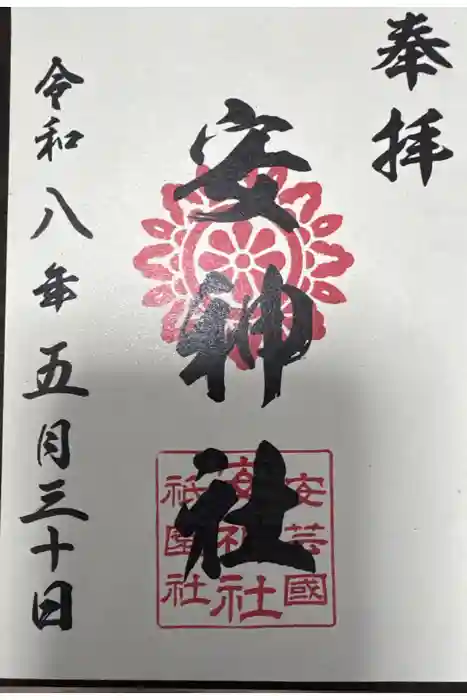 奉拝
安神社
安芸國
安神社
祇園社
令和八年五月三十日